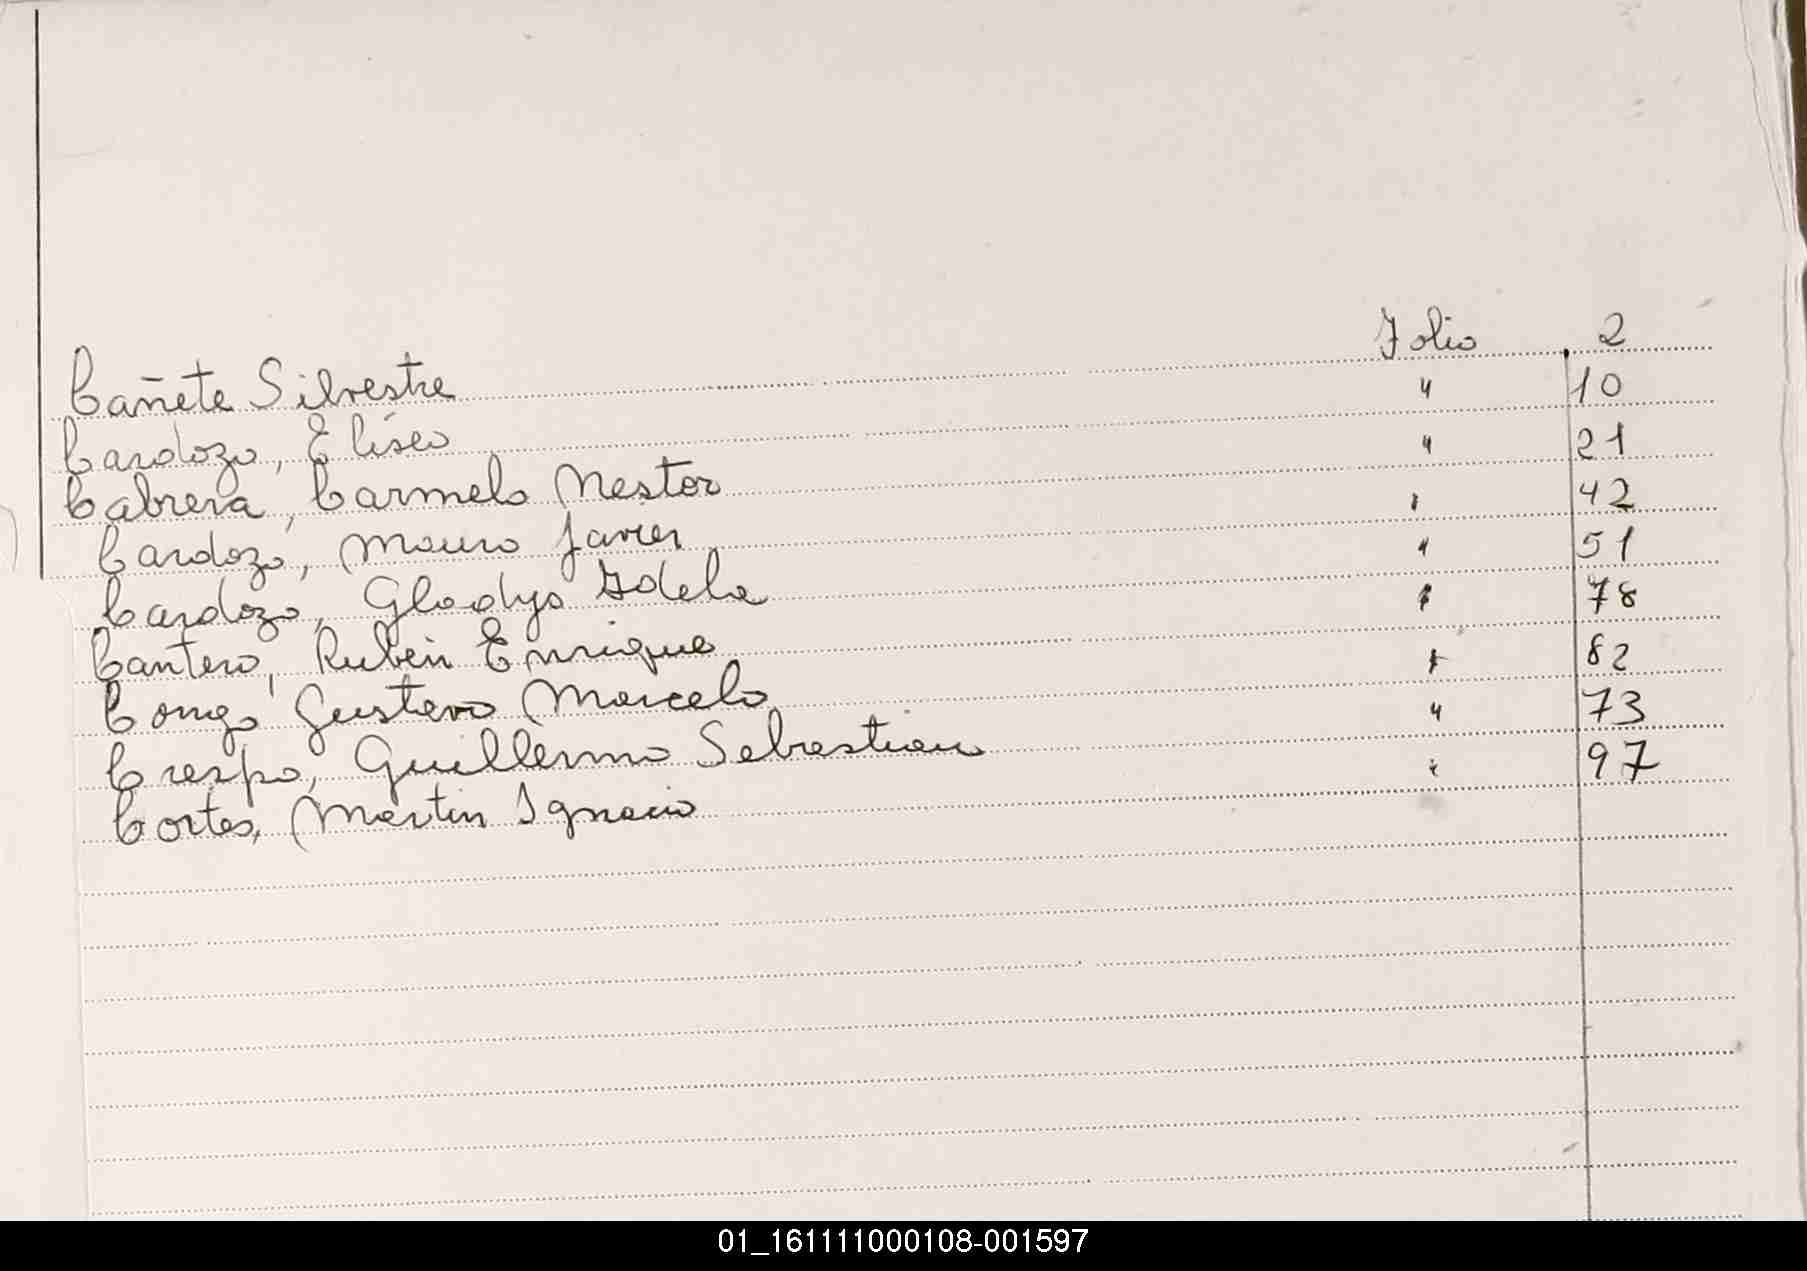 Cañete Silvestre Folio 2
Cardozo, Eliseo " 10
Cabrera, Carmelo Nestor " 21
Cardozo, Mauro Javier " 42
Cardozo, Gladys " 51
Cantero, Rubén Enrique " 78
Gustavo Marcelo " 82
Crespo, Guillermo Sebastian " 73
Cortes, Martin Ignacio " 97
01_161111000108-001597